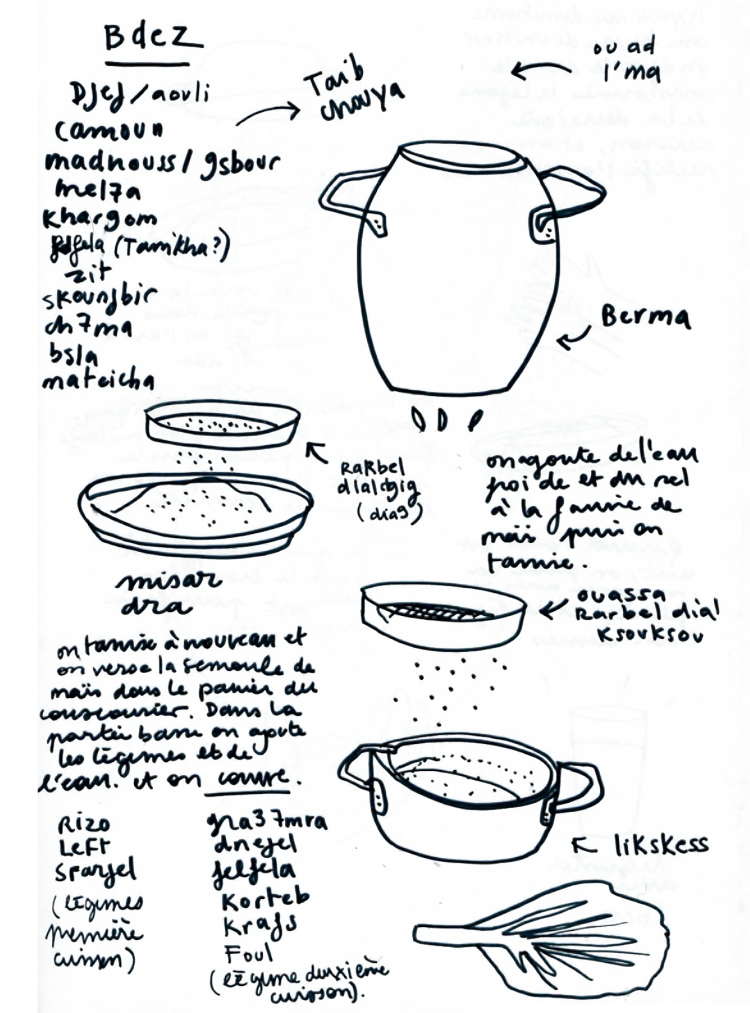 Bdez
Djej/aouli
camoun
madnouss/gsbour
mel7a
Khargom
felfela (Tamikha?)
zit
skounjbir
ch7ma
bsla
mateicha
Taib
chouya
ou ad
l'ma
Berma
RaRbel
(dia9)
on agoute de l'eau
poi de et du sel
à la farine de
maïs puis on
tamise.
misar
dra
ouassa
RarbeL dial
Ksouksou
on tamise à nouveau et
on verse la semoule de
maïs dans le panier du
couscousier. Dans la
partie basse on ajoute
les légumes et de
l'eau. et on couvre.
likskess
Rizo
Left
Sparjel
(légumes
première
cuisson)
gra37mra
dnejel
felfela
Korteb
Krafs
Foul
(légume deuxième
cuisson).